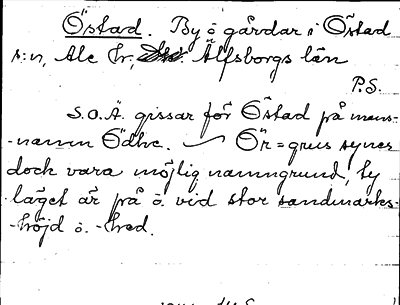 Östad. By o gårdar i Östad
s:n, Ale hr, Älfsborgs län
P.S.
S.O.Ä. gissar för Östad på mans-
-namn Ödhe. — Ör = grus synes
dock vara möjlig namngrund, ty
läget är på ö. vid stor sandmarks-
-höjd o. -hed.